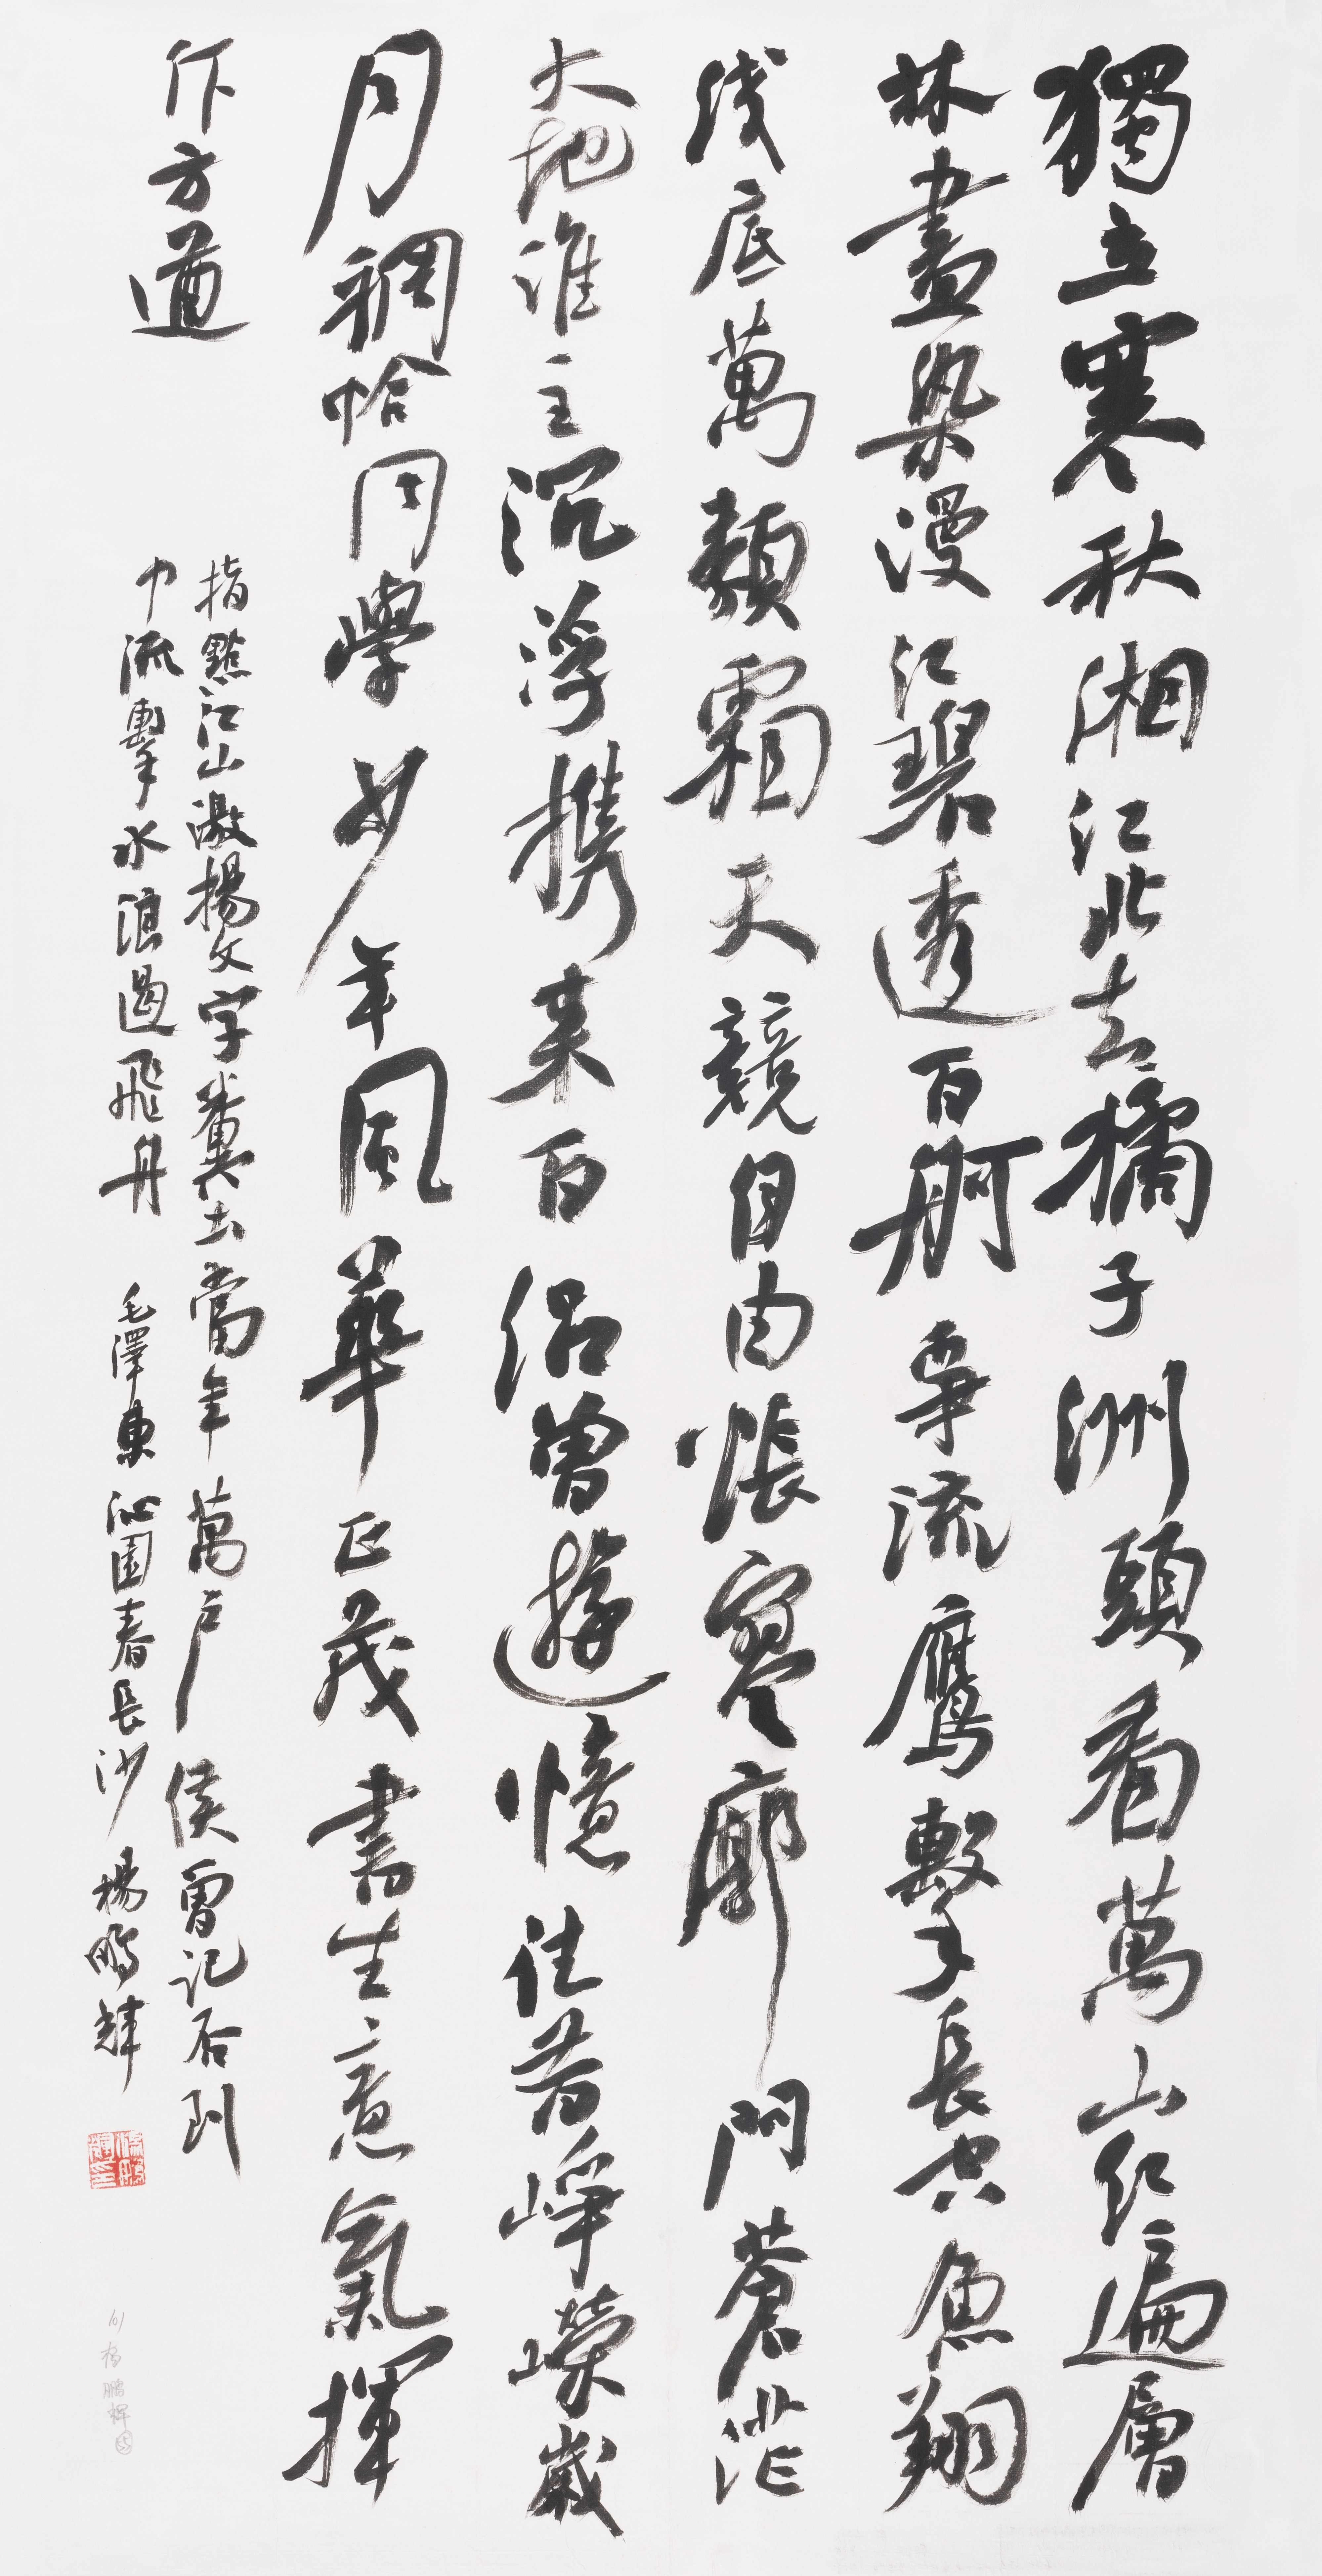 獨立寒秋湘江北去橘子洲頭看萬山紅遍層
林盡染漫江碧透百舸爭流鷹擊長空魚翔
淺底萬類霜天競自由悵寥廓問蒼茫
大地誰主沉浮携來百侶曾遊憶往昔崢嶸歲
月稠恰同學少年風華正茂書生意氣揮
斥方遒
指點江山激揚文字糞土當年萬户侯曾記否到
中流擊水浪遏飛舟 毛澤東沁園春長沙 楊鵬輝